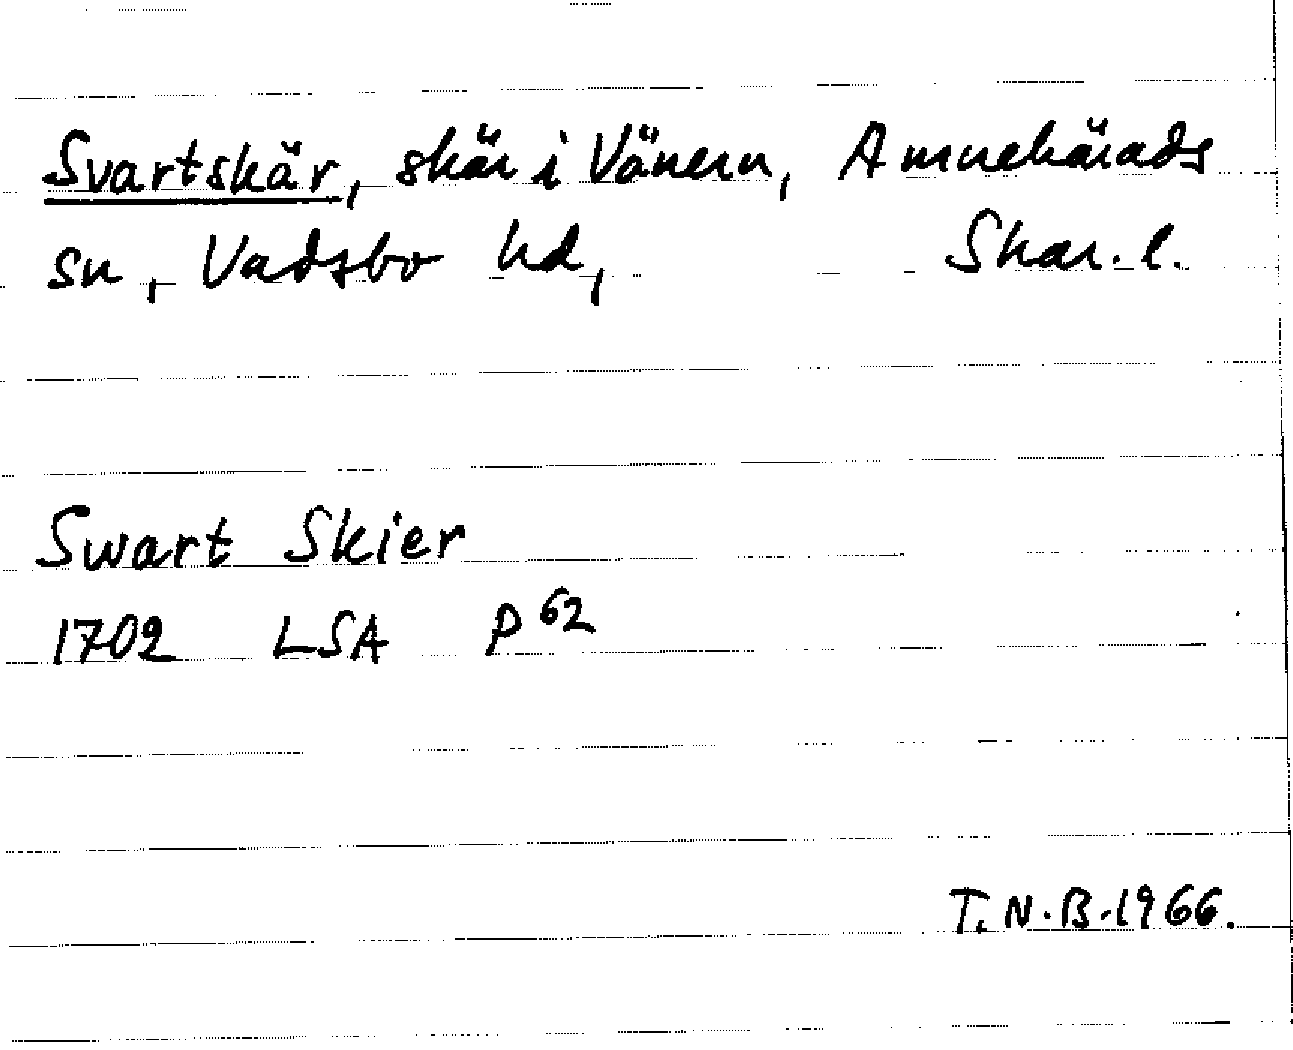 Svartskär, skär i Vänern, Amnehärads
sn, Vadsbo hd, Skar. l.
Swart Skier
1702 LSA P 62
T. N. B. 1966.